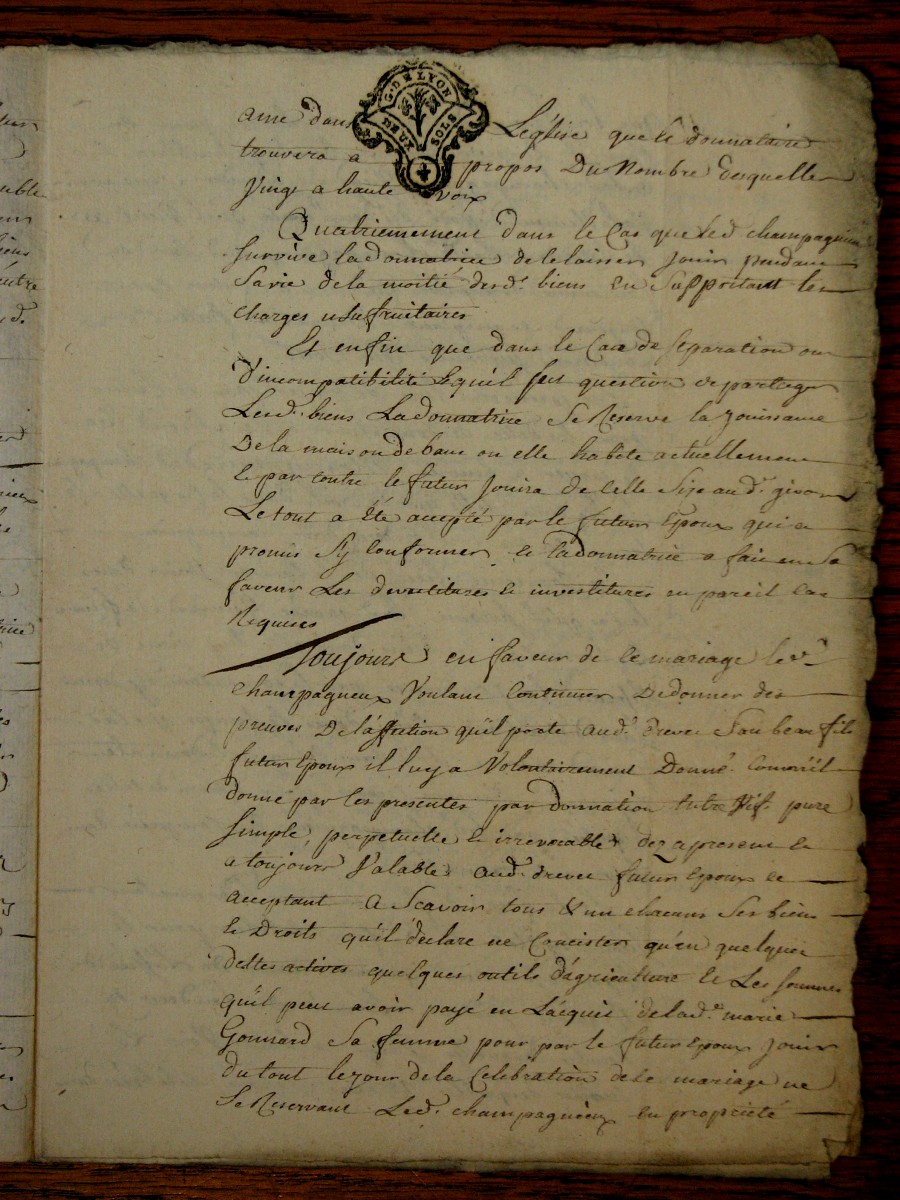 G. DE LYON
DEUX SOLS
ame dans L'église que le donnataire
trouvera a propos Du Nombre desquelles
Vingt a haute voix
Quatriemement dans le Cas que led. champagneux
survive la donnatrice de le laisser Jouir pendant
sa vie de la moitié desd. biens en Supportant les
charges usufruitaires
Et enfin que dans le Cas de separation ou
D'incompatibilité & quil fut question de partager
Lesd. biens La donnatrice Se Reserve la Jouissance
De la maison de baue ou elle habite actuellement
& par contre le futur Jouira de Celle Size aud. givors
Le tout a Eté accepté par le futur Epoux qui a
promis s'y Conformer & la donnatrice a fait en Sa
faveur Les devetitures & investitures en pareil Cas
Requises
Toujours en faveur de Ce mariage le Sr.
Champagneux Voulant Continuer De donner des
preuves De l'affection qu'il porte aud. drevet Son beau fils
futur Epoux il luy a Volontairement Donné Comm'il
donne par les presentes par donnation entre Vifs pure
Simple, perpetuelle & irrevocable dez a present &
a toujours Valable aud. drevet futur Epoux &
acceptant A Scavoir tous & un chacuns Ses biens
& Droits qu'il declare ne Concister qu'en quelques
dettes actives quelques outils d'agriculture & Les sommes
qu'il peut avoir payé en L'acquit de lad. marie
Gonnard Sa femme pour par le futur Epoux Jouir
du tout le jour de la Celebration de ce mariage ne
Se Reservant Led. champagneux en proprieté